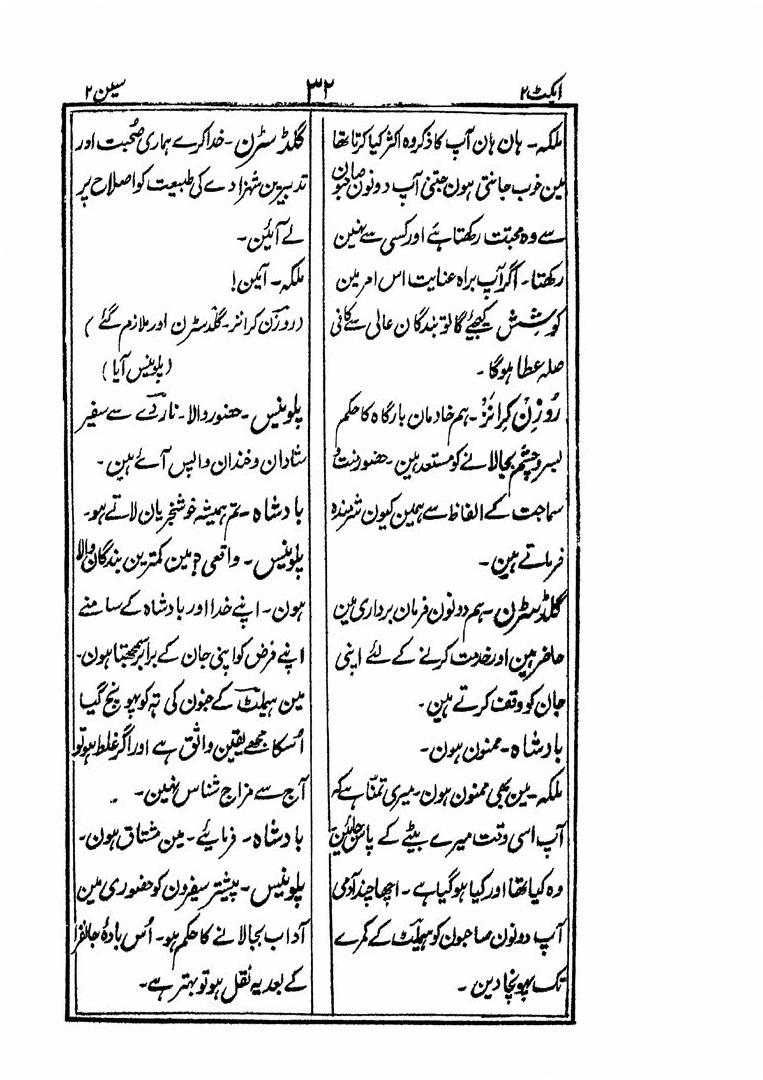 ایکٹ ۲
۳۲
سین ۲
ملکہ۔ ہان ہان آپ کا ذکر وہ اکثر کیا کرتا تھا
مین خوب جانتی ہون جتنی آپ دونون صاحبون
سے وہ محبت رکھتا ہے اور کسی سے نہین
رکھتا۔ اگر آپ براہ عنایت اس امر مین
کوشش کیجئے گا تو بندگان عالی سے کافی
صلہ عطا ہوگا۔
روزن کرانز۔ ہم خادمان بارگاہ کا حکم
بسر و چشم بجا لانے کو مستعد ہین۔ حضور منت و
سماجت کے الفاظ سے ہمین کیون شرمندہ
فرماتے ہین۔
گلڈ سٹرن۔ ہم دونون فرمان برداری مین
حاضر ہین اور خدمت کرنے کے لئے اپنی
جان کو وقف کرتے ہین۔
بادشاہ۔ ممنون ہون۔
ملکہ۔ مین بھی ممنون ہون۔ میری تمنا ہے کہ
آپ اسی وقت میرے بیٹے کے پاس جائین
وہ کیا تھا اور کیا ہو گیا ہے۔ اچھا چند آدمی
آپ دونون صاحبون کو ہیملٹ کے کمرے
تک پہونچا دین۔
گلڈ سٹرن۔ خدا کرے ہماری صحبت اور
تدبیرین شہزادے کی طبیعت کو اصلاح پر
لے آئین۔
ملکہ۔ آمین!
(روزن کرانز۔ گلڈسٹرن اور ملازم گئے)
(پلونیس آیا)
پلونیس۔ حضور والا۔ ناروے سے سفیر
شادان و خندان واپس آئے ہین۔
بادشاہ۔ تم ہمیشہ خوشخبریان لاتے ہو۔
پلونیس۔ واقعی؟ مین کمترین بندگان والا
ہون۔ اپنے خدا اور بادشاہ کے سامنے
اپنے فرض کو اپنی جان کے برابر سمجھتا ہون۔
مین ہیملٹ کے جنون کی تہ کو پہونچ گیا
اسکا مجھے یقین واثق ہے اور اگر غلط ہو تو
آج سے مزاج شناس نہین۔
بادشاہ۔ فرمایئے۔ مین مشتاق ہون۔
پلونیس۔ پیشتر سفیرون کو حضوری مین
آداب بجا لانے کا حکم ہو۔ اُس بادۂ جانفزا
کے بعد یہ نقل ہو تو بہتر ہے۔